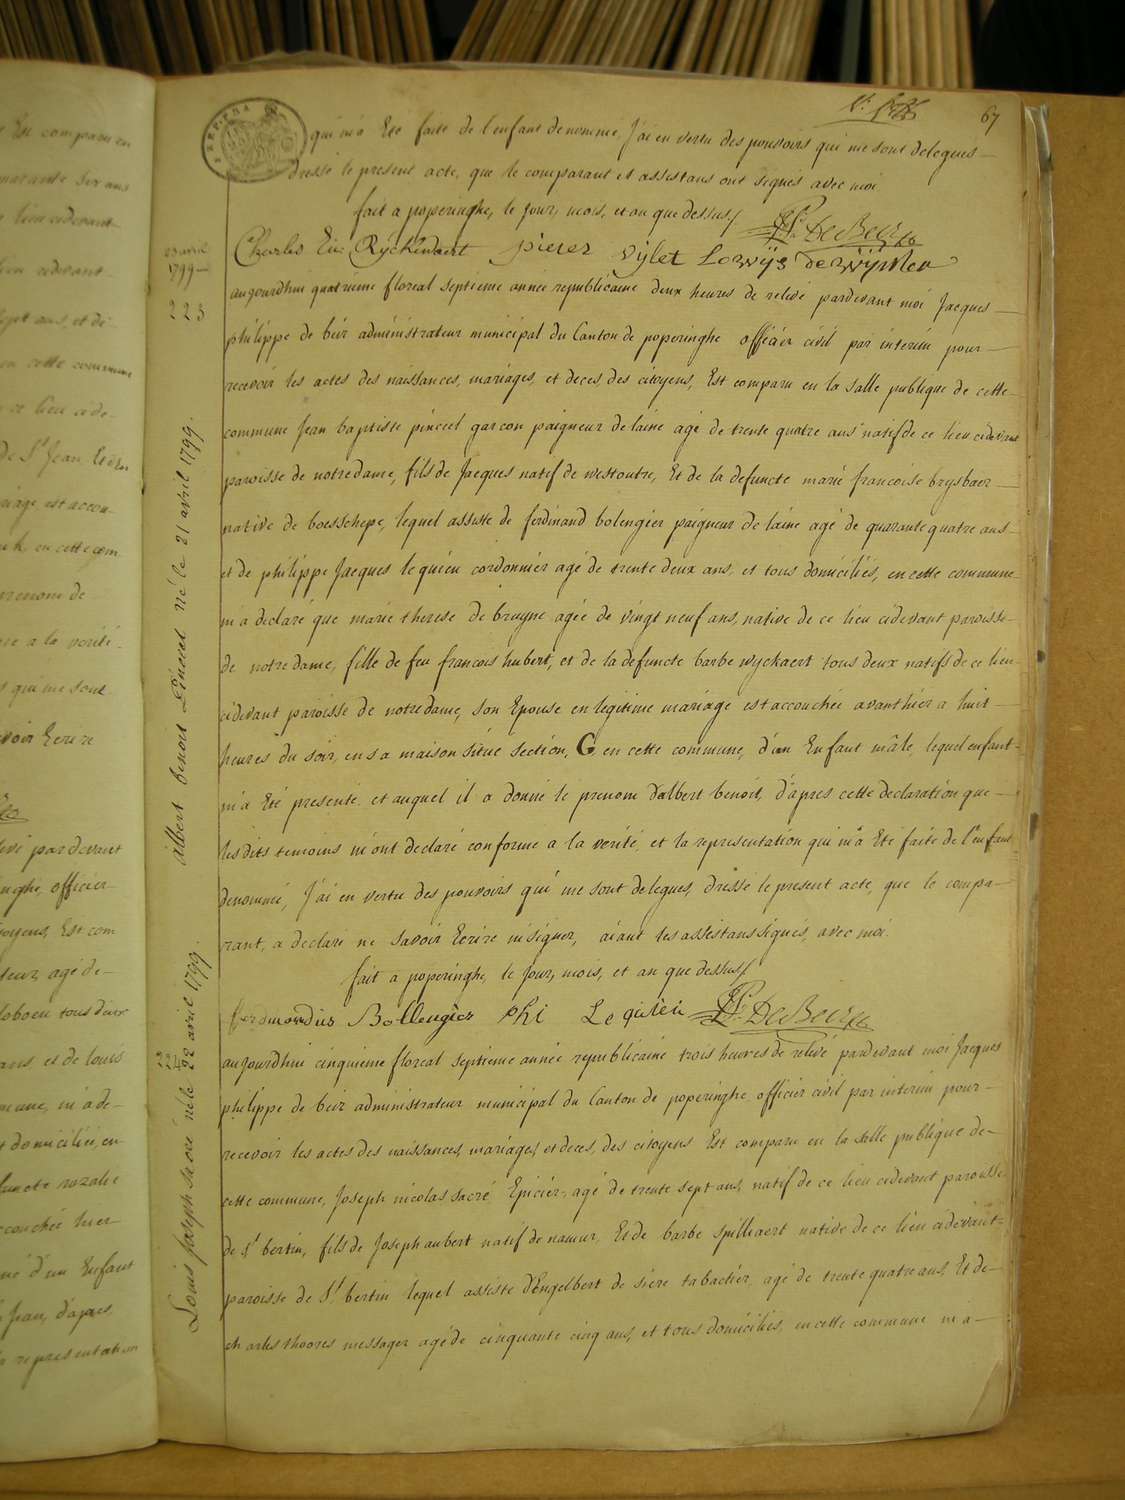 67
qui m'a Eté faite de l'enfant denommé, J'ai en vertu des pouvoirs qui me sont delegues
dressé le present acte, que le comparant et assistans ont signés avec moi
fait a poperinghe, le jour, mois, et an que dessus/
DeBeir
Charles Ryckewaert pieter vylet Lowijs
23 avril
1799
223
aujourdhui quatrieme floreal septieme année republicaine deux heures de relevé pardevant moi Jacques
philippe de beir administrateur municipal du Canton de poperinghe officier civil par interim pour
recevoir les actes des naissances, mariages, et deces, des citoyens, Est comparu en la salle publique de cette
commune Jean baptiste pinceel garcon paigneur de laine agé de trente quatre ans natif de ce lieu cidevant
paroisse de notre dame, fils de Jacques natif de westoutre, Et de la defuncte marie francoise brysbaer
native de boesschepe, lequel assisté de ferdinand bolengier paigneur de laine agé de quarante quatre ans
et de philippe Jacques le quien cordonnier agé de trente deux ans, et tous domiciliés, en cette commune
m'a declaré que marie therese de bruyne agée de vingt neuf ans, native de ce lieu cidevant paroisse
de notre dame, fille de feu francois hubert, et de la defuncte barbe wyckaert tous deux natifs de ce lieu
cidevant paroisse de notre dame, son Epouse en legitime mariage est accouchée avanthier a huit
heures du soir, en sa maison situe section, G en cette commune, d'un Enfant mâle, lequel enfant
m'a Eté presenté, et auquel il a donné le prenom d'albert benoit, d'apres cette declaration que
les dits temoins m'ont declaré conforme a la verité, et la representation qui m'a Eté faite de l'enfant
denommé, J'ai en vertu des pouvoirs qui me sont delegues, dressé le present acte, que le compa-
rant, a declaré ne savoir Ecrire ni signer, aiant les assistans signés, avec moi.
fait a poperinghe, le jour, mois, et an que dessus/
Albert benoit Pinceel né le 21 avril 1799.
ferdinandus Bollengier phi Le quien DeBeir
aujourdhui cinquieme floreal septieme année republicaine trois heures de relevé pardevant moi Jacques
philippe de beir administrateur municipal du Canton de poperinghe officier civil par interim pour
recevoir les actes des naissances, mariages, et deces, des citoyens Est comparu en la salle publique de
cette commune, Joseph nicolas sacré Epicier, agé de trente sept ans, natif de ce lieu cidevant paroisse
de St bertin, fils de Joseph aubert natif de namur, Et de barbe spilliaert native de ce lieu cidevant
paroisse de St bertin lequel assisté d'Engelbert de siere tabactier, agé de trente quatre ans, Et de
charles thoores messager agé de cinquante cinq ans, et tous domiciliés, en cette commune m'a
Louis Joseph sacré né le 22 avril 1799.